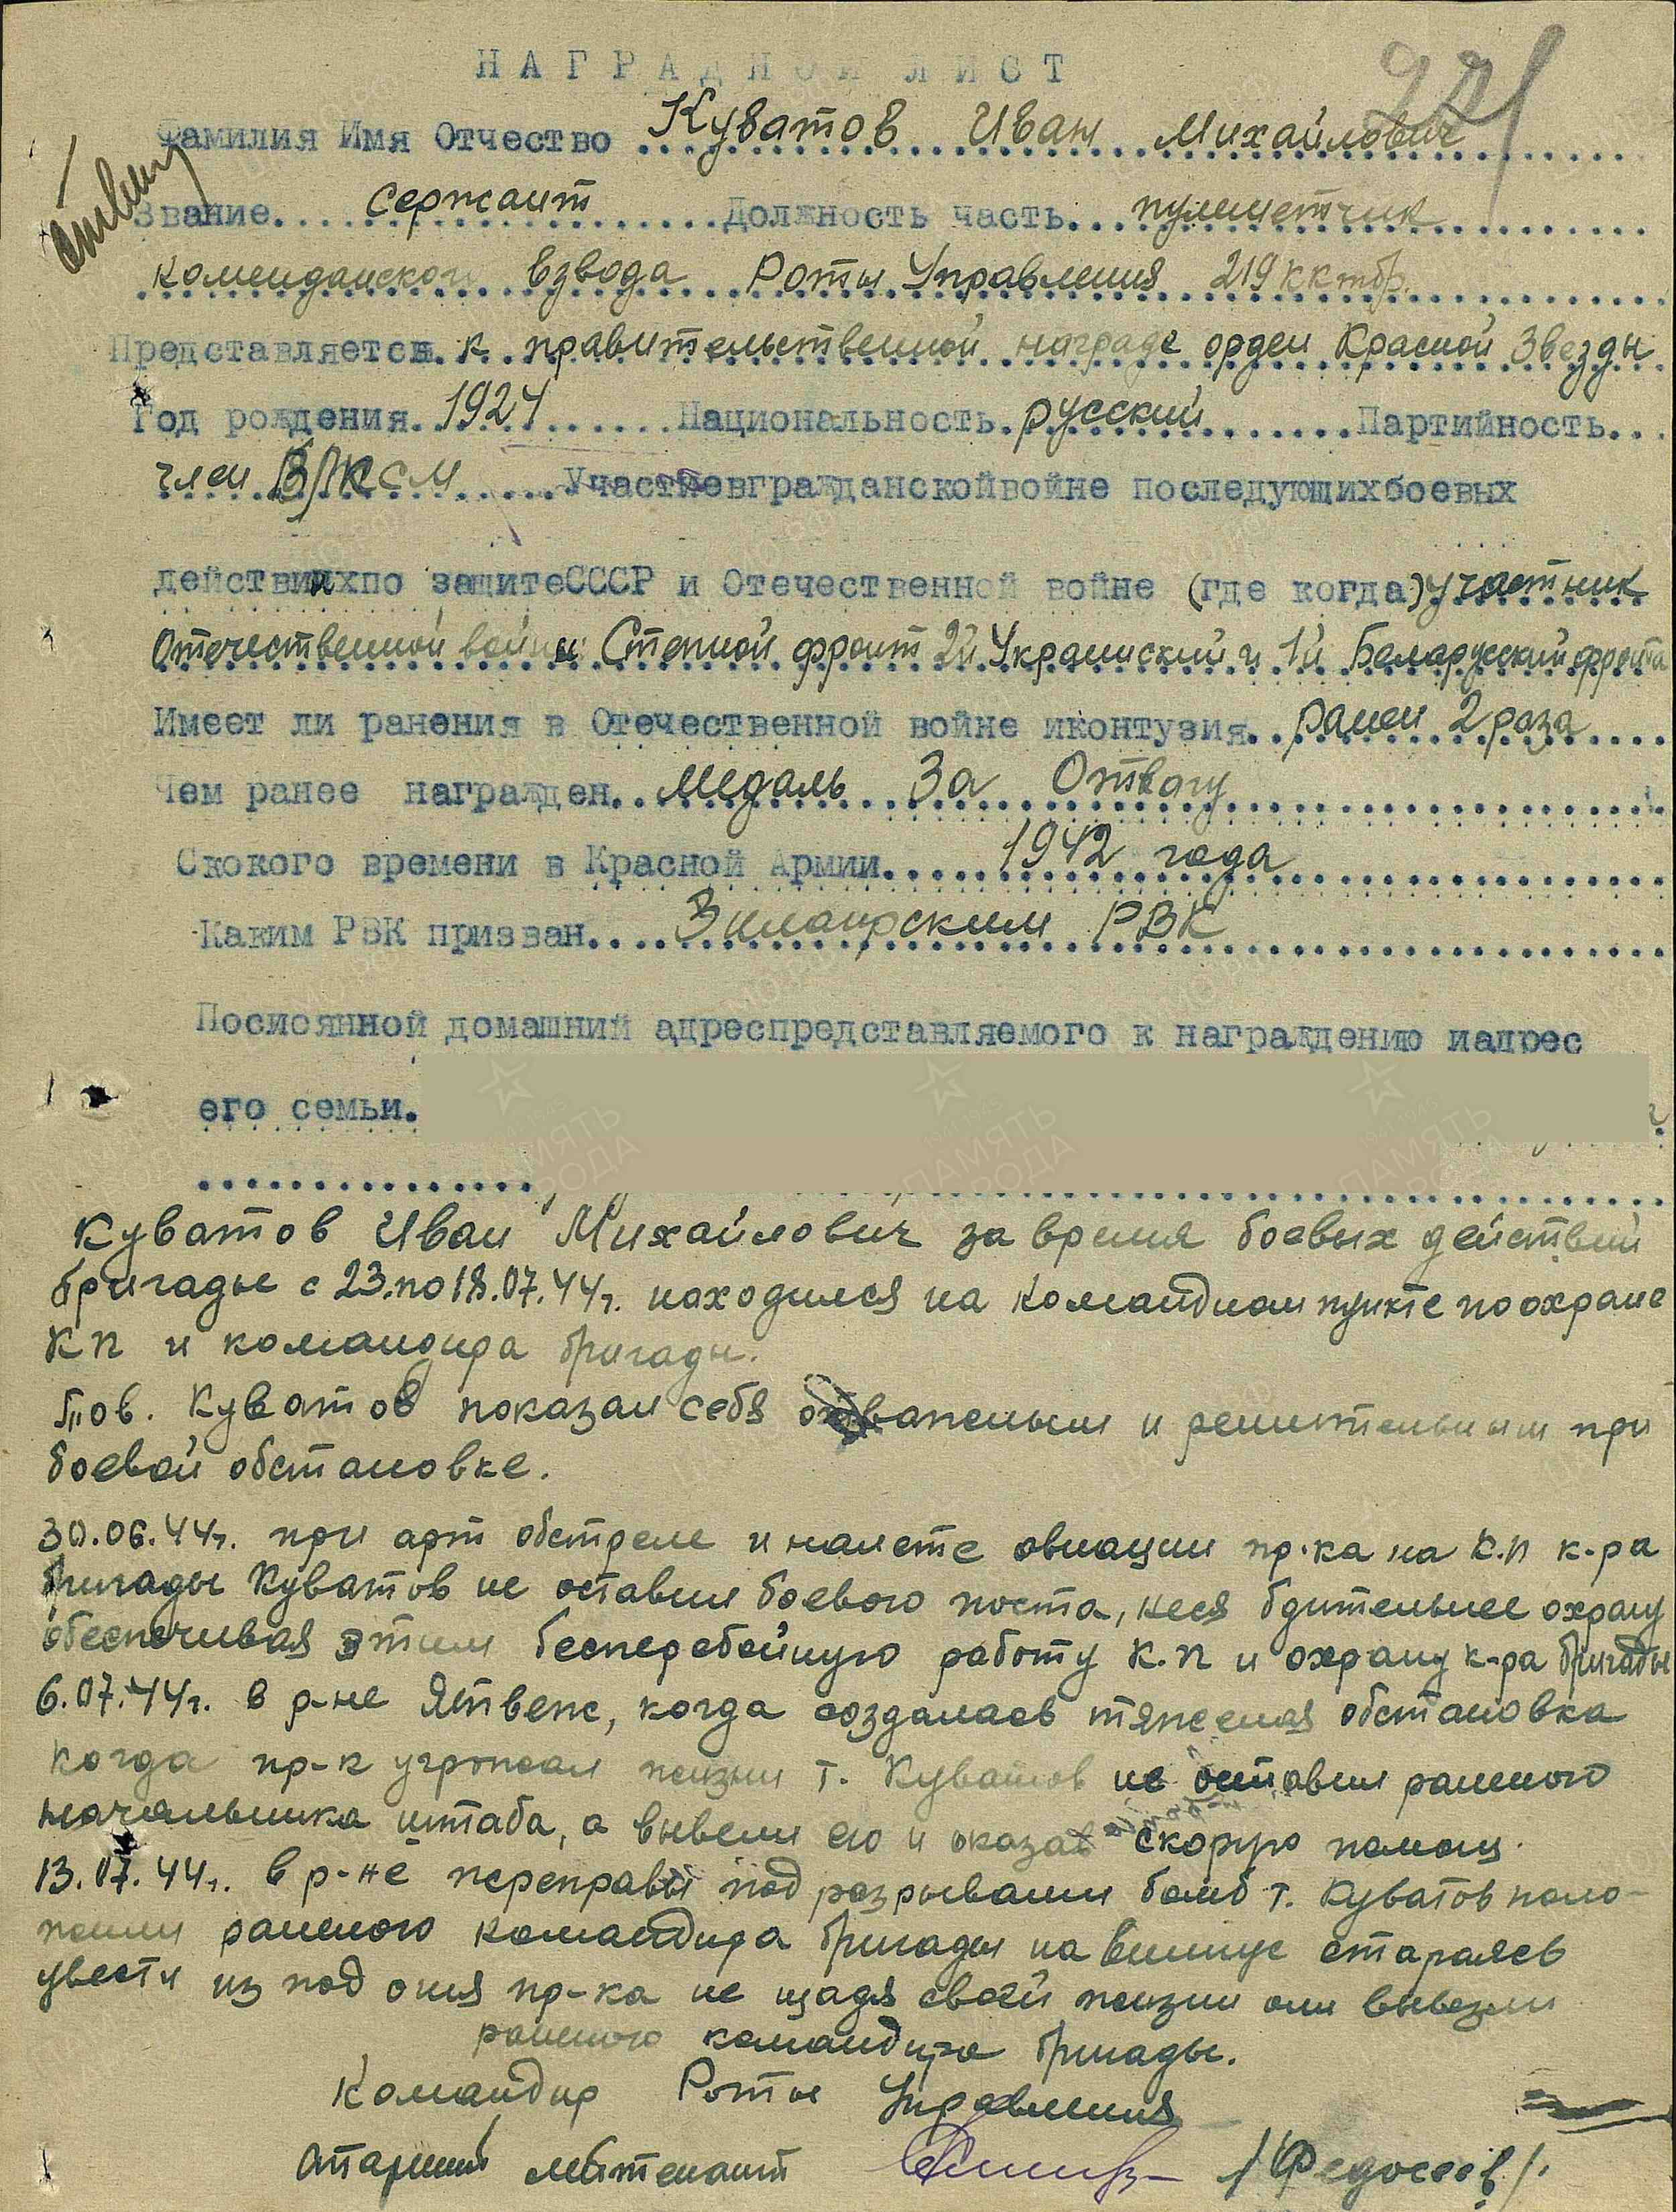 НАГРАДНОЙ ЛИСТ
221
Фамилия Имя Отчество Куватов Иван Михайлович
Звание сержант Должность часть пулеметчик
комендансного взвода Роты Управления 219 ККтбр.
Представляется к правительственной награде орден Красной Звезды
Год рождения 1924 Национальность русский Партийность
член ВЛКСМ Участиевгражданскойвойне последующихбоевых
действияхпо защитеСССР и Отечественной войне (где когда) участник
Отечественной войны Степной фронт 2й Украинский и 1й Беларусский фронта
Имеет ли ранения в Отечественной войне иконтузия ранен 2 раза
Чем ранее награжден медаль За Отвагу
Скокого времени в Красной Армии 1942 года
Каким РВК призван Зилаирским РВК
Посиоянной домашний адреспредставляемого к награждению иадрес
его семьи.
Куватов Иван Михайлович за время боевых действий
бригады с 23.по 18.07.44г. находился на командном пункте по охране
КП и командира бригады.
Тов. Куватов показал себя отважным и решительным при
боевой обстановке.
30.06.44г. при арт обстреле и налете авиации пр-ка на К.П к-ра
бригады Куватов не оставил боевого поста, неся бдительнее охрану
обеспечивая этим бесперебойную работу К.П и охрану к-ра бригады
6.07.44г. в р-не Ятвеж, когда создалась тяжелая обстановка
когда пр-к угрожал жизни т. Куватов не оставил раненого
начальника штаба, а вывели его и оказав скорую помощ.
13.07.44г. в р-не переправы под разрывами бомб т. Куватов поло-
жили раненого командира бригады на стараясь
увести из под огня пр-ка не щадя своей жизни они вывезли
раненого командира бригады.
Командир Роты Управления
старший лейтенант /Федосеев/.
ПАМЯТЬ
НАРОДА